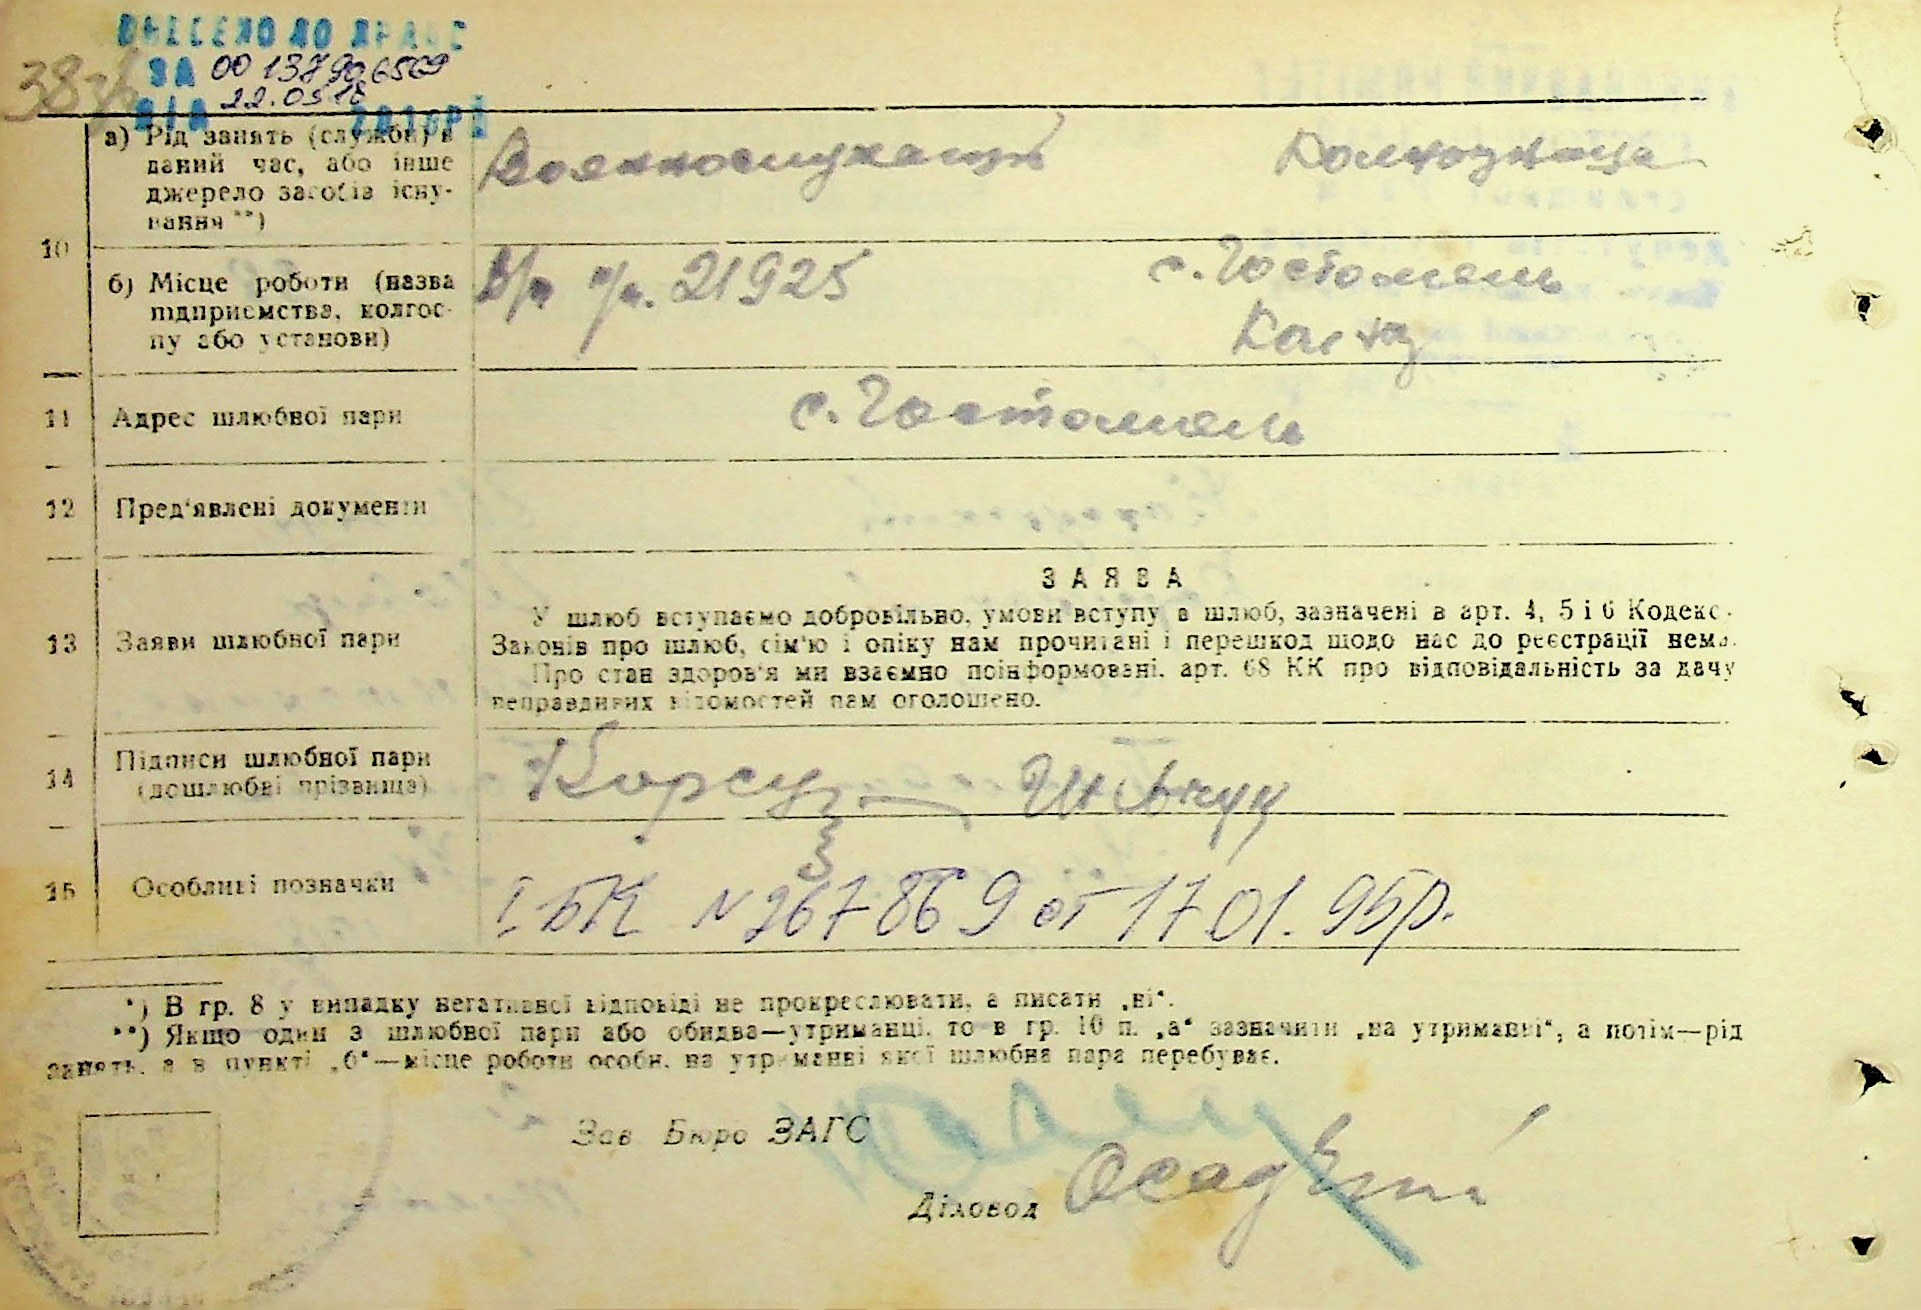 ВНЕСЕНО ДО ДРАЦС
ЗА 00137906569
ВІД 22.05.18
а) Рід занять (служби) в
даний час, або інше
джерело засобів існу-
вання **)
Военнослужащий
Колхозница
10
б) Місце роботи (назва
підприємства, колгос-
пу або установи)
21925
с. Гостомель
11 Адрес шлюбної пари
с. Гостомель
12 Пред'явлені документи
13 Заяви шлюбної пари
ЗАЯВА
У шлюб вступаємо добровільно, умови вступу в шлюб, зазначені в арт. 4, 5 і 6 Кодекс
Законів про шлюб, сім'ю і опіку нам прочитані і перешкод щодо нас до реєстрації нема.
Про стан здоров'я ми взаємно поінформовані. арт. 68 КК про відповідальність за дачу
неправдивих відомостей нам оголошено.
14 Підписи шлюбної пари
(дошлюбні прізвища)
15 Особливі позначки
І БК N 267869 от 17.01.95р.
*) В гр. 8 у випадку негативної відповіді не прокреслювати, а писати „ні".
**) Якщо один з шлюбної пари або обидва—утриманці, то в гр. 10 п. „а" зазначити „на утриманні", а потім—рід
занять, а в пункті „б"—місце роботи особи, на утриманні якої шлюбна пара перебуває.
Зав. Бюро ЗАГС
Діловод